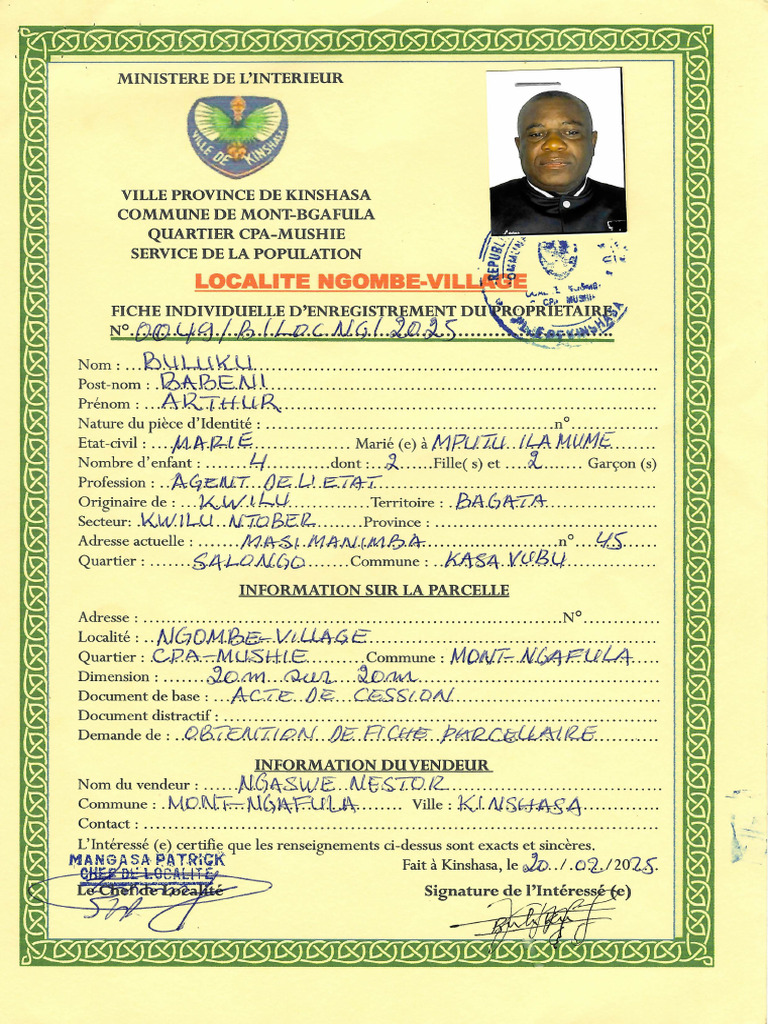 MINISTERE DE L'INTERIEUR
VILLE DE KINSHASA
VILLE PROVINCE DE KINSHASA
COMMUNE DE MONT-BGAFULA
QUARTIER CPA-MUSHIE
SERVICE DE LA POPULATION
LOCALITE NGOMBE-VILLAGE
FICHE INDIVIDUELLE D'ENREGISTREMENT DU PROPRIETAIRE
N°.0049/B/LOC.NG/.2025
Nom : BULUKU
Post-nom : BABENI
Prénom : ARTHUR
Nature du pièce d'Identité : n°
Etat-civil : MARIE Marié (e) à MPUTU ILAMUME
Nombre d'enfant : 4 dont : 2 Fille( s) et 2 Garçon (s)
Profession : AGENT DE L'ETAT
Originaire de : KWILU Territoire : BAGATA
Secteur: KWILU NTOBER Province :
Adresse actuelle : MASIMANIMBA n° 45
Quartier : SALONGO Commune : KASA-VUBU
INFORMATION SUR LA PARCELLE
Adresse : N°
Localité : NGOMBE-VILLAGE
Quartier : CPA-MUSHIE Commune : MONT-NGAFULA
Dimension : 20m sur 20m
Document de base : ACTE DE CESSION
Document distractif :
Demande de : OBTENTION DE FICHE PARCELLAIRE
INFORMATION DU VENDEUR
Nom du vendeur : NGASWE NESTOR
Commune : MONT-NGAFULA Ville : KINSHASA
Contact :
L'Intéressé (e) certifie que les renseignements ci-dessus sont exacts et sincères.
Fait à Kinshasa, le 20../.02/2025.
MANGASA PATRICK
CHEF DE LOCALITE
Le Chef de Localité Signature de l'Intéressé (e)